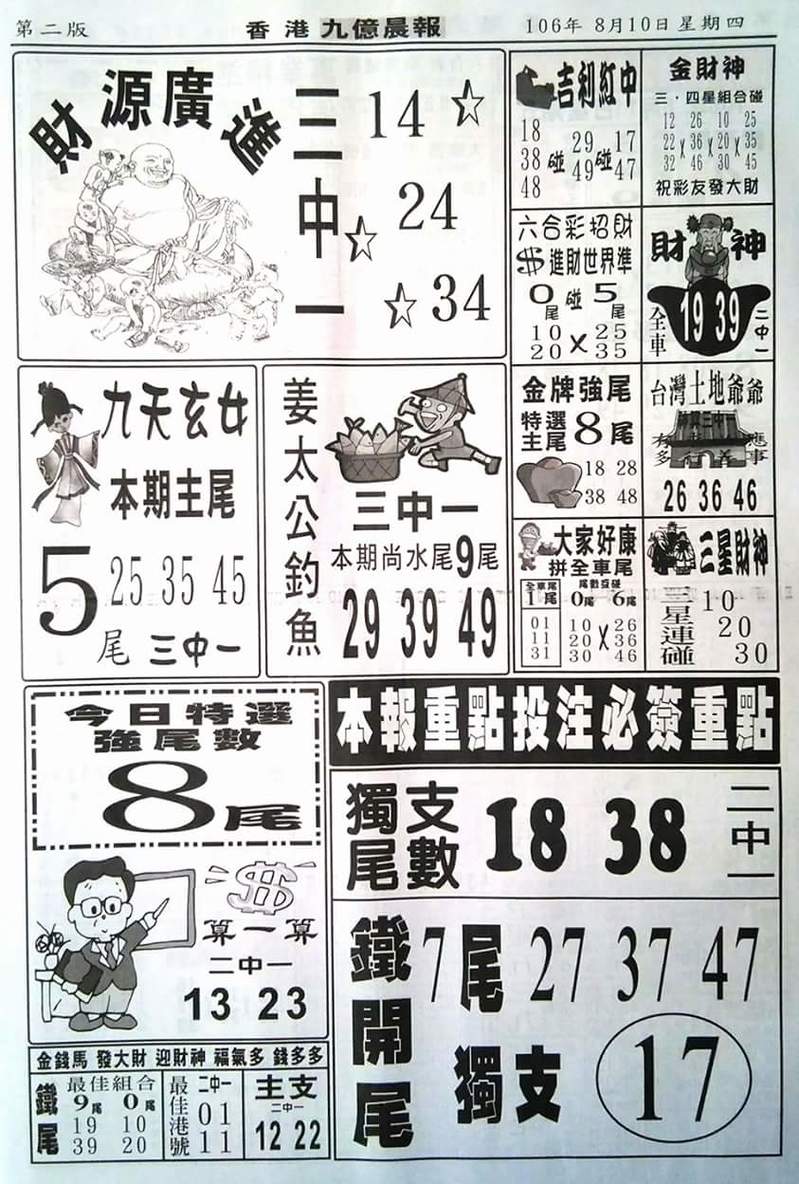 第二版 香港九億晨報 106年 8月10日星期四
財源廣進
三中一
☆14
☆24
☆34
吉利紅中
18
38碰29碰17
48 49 47
金財神
三·四星組合碰
12 26 10 25
22×36×20×35
32 46 30 45
祝彩友發大財
六合彩招財
$進財世界準
0尾碰5尾
10×25
20 35
財神
全車 19 39 二中一
九天玄女
本期主尾
5尾
25 35 45
三中一
姜太公釣魚
三中一
本期尚水尾9尾
29 39 49
金牌強尾
特選主尾8尾
18 28
38 48
台灣土地爺爺
26 36 46
大家好康
拼全車尾
全車尾
1尾
01
11
31
尾數互碰
0尾 6尾
10 26
20×36
30 46
三星財神
三星連碰
10
20
30
今日特選
強尾數
8尾
$
算一算
二中一
13 23
本報重點投注必簽重點
獨支
尾數
18 38
二中一
鐵開尾
7尾 27 37 47
獨支 17
金錢馬 發大財 迎財神 福氣多 錢多多
鐵尾
最佳組合
9尾 0尾
19 10
39 20
最佳港號
二中一
01
11
主支
二中一
12 22